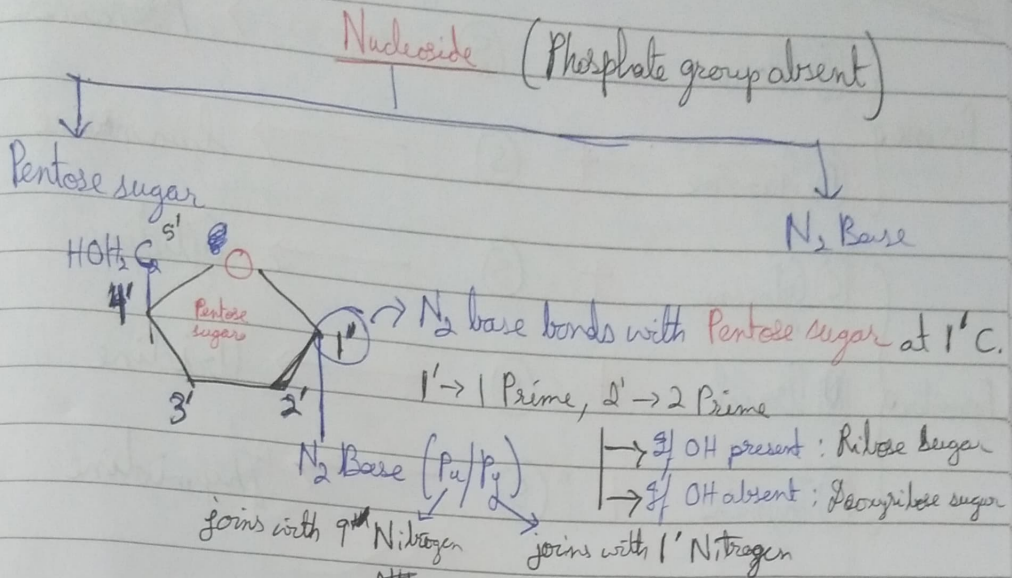 Nucleoside (Phosphate group absent)
Pentose sugar
N2 Base
HOH2C 5'
O
4'
Pentose
sugar
1'
→ N2 base bonds with Pentose sugar at 1'C.
3'
2'
1' → 1 Prime, 2' → 2 Prime
→ If OH present : Ribose sugar
→ If OH absent : Deoxyribose sugar
N2 Base (Pu/Py)
joins with 9th Nitrogen
joins with 1' Nitrogen